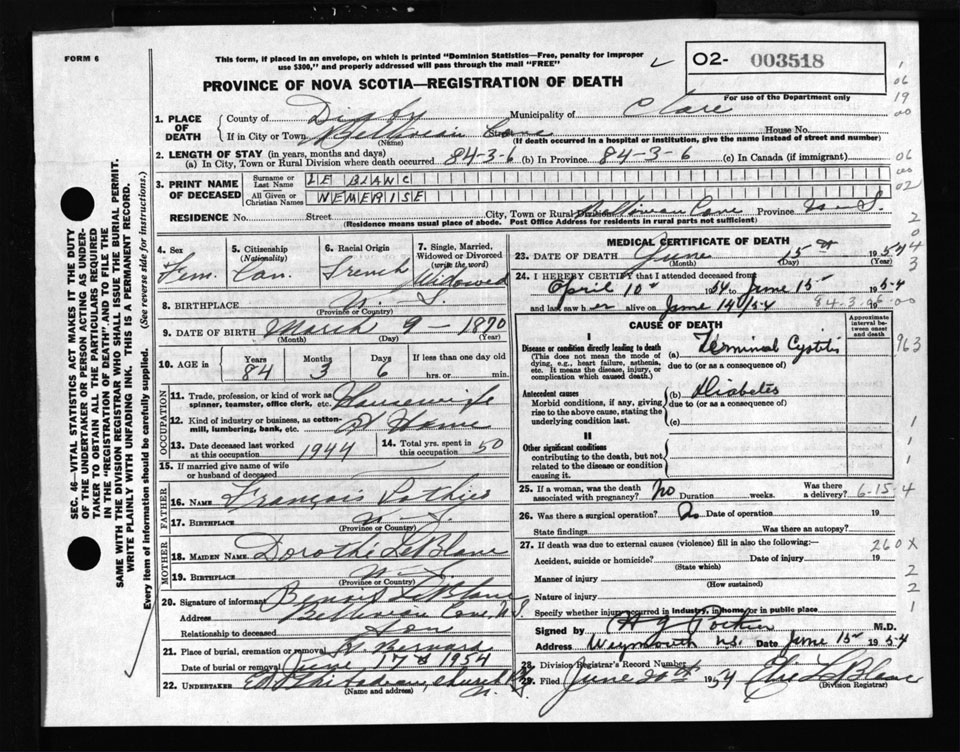 FORM 6
This form, if placed in an envelope, on which is printed "Dominion Statistics—Free, penalty for improper
use $300," and properly addressed will pass through the mail "FREE"
02- 003518
For use of the Department only
PROVINCE OF NOVA SCOTIA—REGISTRATION OF DEATH
SEC. 46—VITAL STATISTICS ACT MAKES IT THE DUTY
OF THE UNDERTAKER OR PERSON ACTING AS UNDER-
TAKER TO OBTAIN ALL THE PARTICULARS REQUIRED
IN THE "REGISTRATION OF DEATH" AND TO FILE THE
SAME WITH THE DIVISION REGISTRAR WHO SHALL ISSUE THE BURIAL PERMIT.
WRITE PLAINLY WITH UNFADING INK. THIS IS A PERMANENT RECORD.
Every item of information should be carefully supplied. (See reverse side for instructions.)
1. PLACE OF DEATH
County of Digby Municipality of Clare
If in City or Town Belliveau Cove Street House No.
(Name) (If death occurred in a hospital or institution, give the name instead of street and number)
2. LENGTH OF STAY (in years, months and days)
(a) In City, Town or Rural Division where death occurred 84-3-6 (b) In Province 84-3-6 (c) In Canada (if immigrant)
3. PRINT NAME OF DECEASED
Surname or Last Name LE BLANC
All Given or Christian Names NEMERISE
RESIDENCE No. Street City, Town or Rural Division Belliveau Cove Province N.S.
(Residence means usual place of abode. Post Office Address for residents in rural parts not sufficient)
4. Sex Fem.
5. Citizenship (Nationality) Can.
6. Racial Origin French
7. Single, Married, Widowed or Divorced (write the word) Widowed
8. BIRTHPLACE N.S.
(Province or Country)
9. DATE OF BIRTH March 9 - 1870
(Month) (Day) (Year)
10. AGE in Years 84 Months 3 Days 6 If less than one day old
hrs. or min.
OCCUPATION
11. Trade, profession, or kind of work as
spinner, teamster, office clerk, etc. Housewife
12. Kind of industry or business, as cotton
mill, lumbering, bank, etc. At Home
13. Date deceased last worked
at this occupation 1944
14. Total yrs. spent in
this occupation 50
15. If married give name of wife
or husband of deceased
FATHER
16. NAME François Pothier
17. BIRTHPLACE N.S.
(Province or Country)
MOTHER
18. MAIDEN NAME Dorothé LeBlanc
19. BIRTHPLACE N.S.
(Province or Country)
20. Signature of informant Benoit LeBlanc
Address Belliveau Cove, N.S.
Relationship to deceased Son
21. Place of burial, cremation or removal St Bernard
Date of burial or removal June 17th 1954
22. UNDERTAKER Church Pt
(Name and address) N.
MEDICAL CERTIFICATE OF DEATH
23. DATE OF DEATH June 15th 1954
(Month) (Day) (Year)
24. I HEREBY CERTIFY that I attended deceased from
April 10th 1954 to June 15th 1954
and last saw her alive on June 14th/54 19
84-3-06-00
CAUSE OF DEATH
Approximate interval between onset and death
I
Disease or condition directly leading to death
(This does not mean the mode of
dying, e.g., heart failure, asthenia,
etc. It means the disease, injury, or
complication which caused death.)
(a) Terminal Cystitis
due to (or as a consequence of)
Antecedent causes
Morbid conditions, if any, giving
rise to the above cause, stating the
underlying condition last.
(b) Diabetes
due to (or as a consequence of)
(c)
II
Other significant conditions
contributing to the death, but not
related to the disease or condition
causing it.
25. If a woman, was the death
associated with pregnancy? No Duration weeks. Was there
a delivery? 6-15-4
26. Was there a surgical operation? No Date of operation 19
State findings Was there an autopsy?
27. If death was due to external causes (violence) fill in also the following:— 260X
Accident, suicide or homicide? Date of injury 19
(State which)
Manner of injury
(How sustained)
Nature of injury
Specify whether injury occurred in industry, in home, or in public place
Signed by M.D.
Address Weymouth N.S. Date June 15th 1954
28. Division Registrar's Record Number
29. Filed June 20th 1954 Elie LeBlanc
(Division Registrar)
1
06
19
00
06
00
02
2
0
4
3
963
1
1
1
2
2
1